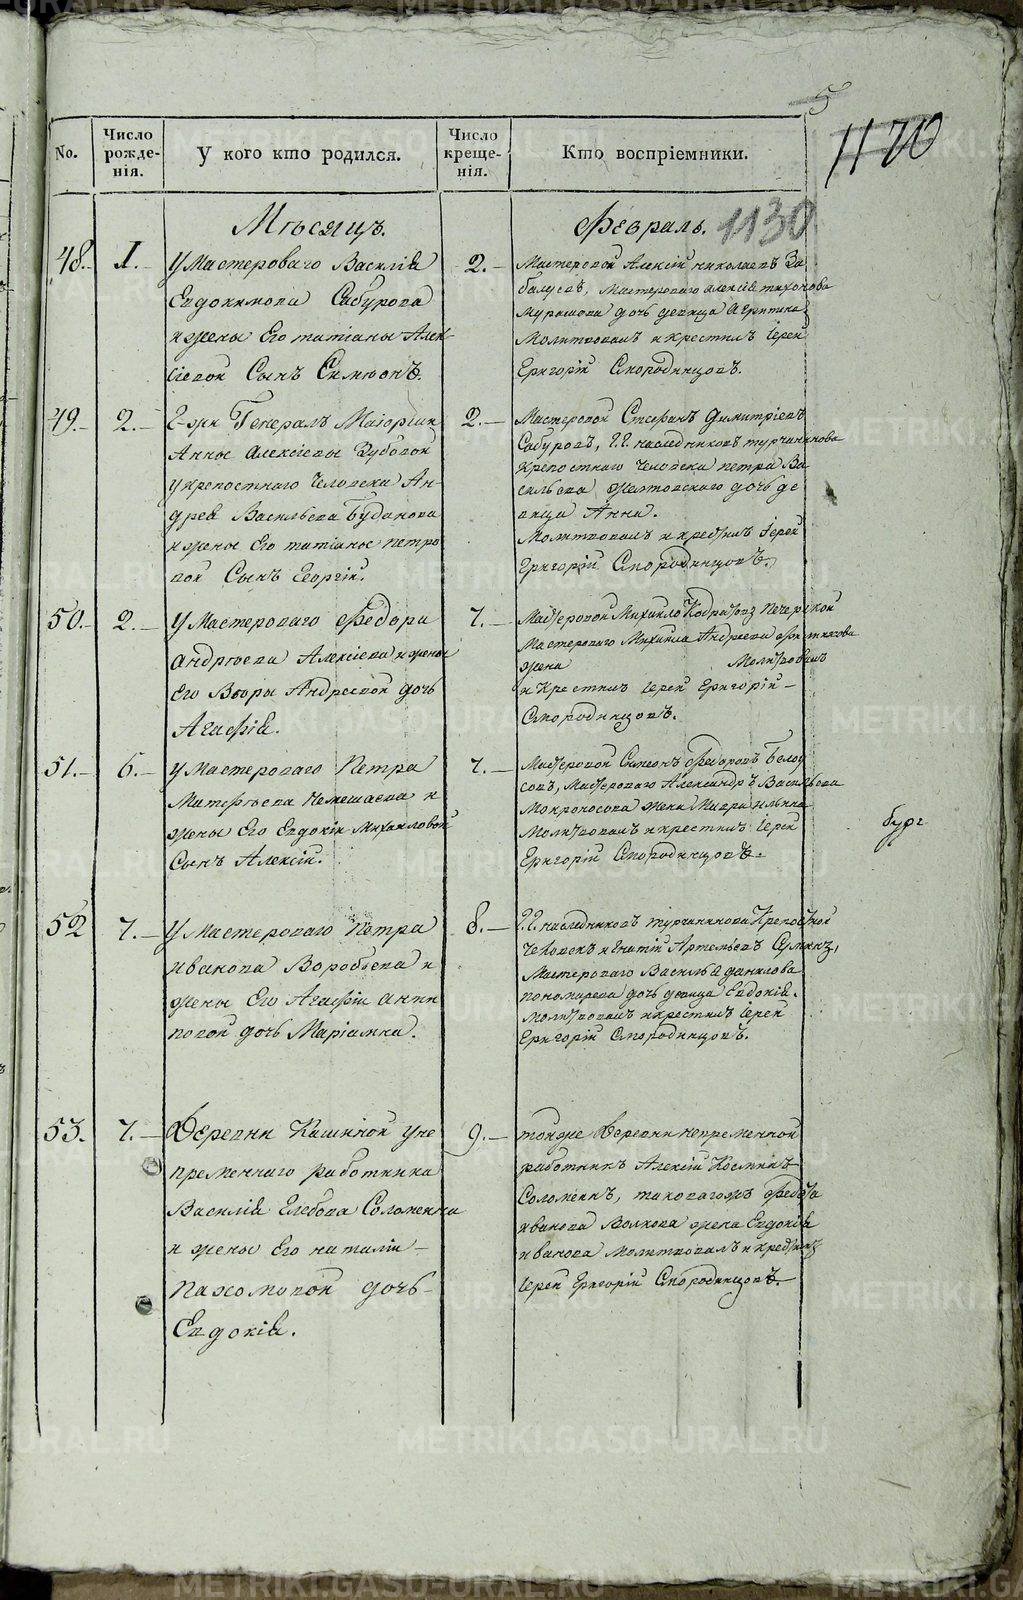 5
1170
No.
Число рожде-нія.
У кого кто родился.
Число креще-нія.
Кто воспріемники.
Мѣсяцъ.
Февраль. 1130
48.
1.
У Мастероваго Василія
Евдокимова Сабурова
и жены Его татіаны Алек
сіевой Сынъ Симеонъ.
2.
Мастеровой Алексій николаевъ За
балуевъ, Мастероваго алексія тихонова
Мурашова дочь девица Агрипина
Молитвовалъ и крестилъ Іерей
Григорій Смородинцовъ.
49.
2.
Г-жи Генералъ Маіорши
Анны Алексіевы Зубовой
у крепостнаго Человека Ан
дрея Васильева Буданова
и жены Его татіаны петро
вой Сынъ Георгій.
2.
Мастеровой Стефанъ Димитріевъ
Сабуровъ, Г.Г. наследниковъ турчанинова
крепостнаго Человека петра Ва
сильева желтовскаго дочь де
вица Анна.
Молитвовалъ и крестилъ Іерей
Григорій Смородинцовъ.
50.
2.
У Мастероваго Федора
андреева Алексіева и жены
Его Вѣры Андреевой дочь
Агафія.
7.
Мастеровой Михайло Кодратов Печерской
Мастероваго Михаила Андреева
жена Молитвовалъ
и Крестилъ Іерей Григорій
Смородинцовъ.
51.
6.
У Мастероваго Петра
Матфеева Немешаева и
жены Его Евдокіи Михайловой
Сынъ Алексій.
7.
Мастеровой Симеонъ Федоровъ Белоу
совъ, Мастероваго Александръ Васильева
Мокроносова жена Мавра ильина
Молитвовалъ и крестилъ Іерей
Григорій Смородинцовъ.
бург
52
7.
У Мастероваго Петра
иванова Воробьева и
жены Его Агафіи анти
повой дочь Маріамна.
8.
Г.Г. наследниковъ турчанинова Крепостной
Человекъ игнатій Артемьевъ
Мастероваго Василья данилова
пономарева дочь девица Евдокія.
Молитвовалъ и крестилъ Іерей
Григорій Смородинцовъ.
53.
7.
Деревни Кашиной у не
пременнаго работника
Василія Глебова Соломеина
и жены Его наталіи
пахомовой дочь
Евдокія.
9.
тойже деревни непременной
работникъ Алексій Космин
Соломеинъ, таковагожъ Федота
иванова Волкова жена Евдокія
иванова Молитвовалъ и крестилъ
Іерей Григорій Смородинцовъ.
METRIKI.GASO-URAL.RU